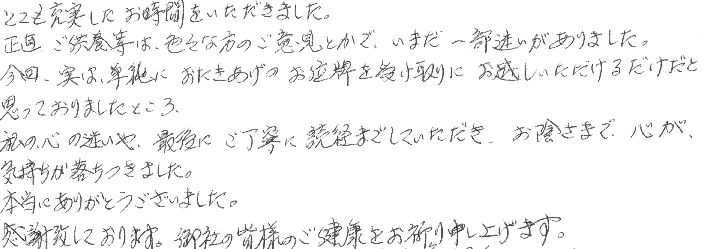 とても充実したお時間をいただきました。
正直ご供養等は、色々な方のご意見とかで、いまだ一部迷いがありました。
今回、実は、単純におたきあげのお位牌を受け取りにお越しいただけるだけだと
思っておりましたところ、
私の心の迷いや、最後にご丁寧に読経までしていただき、お陰さまで、心が、
気持ちが落ちつきました。
本当にありがとうございました。
感謝致しております。御社の皆様のご健康をお祈り申し上げます。